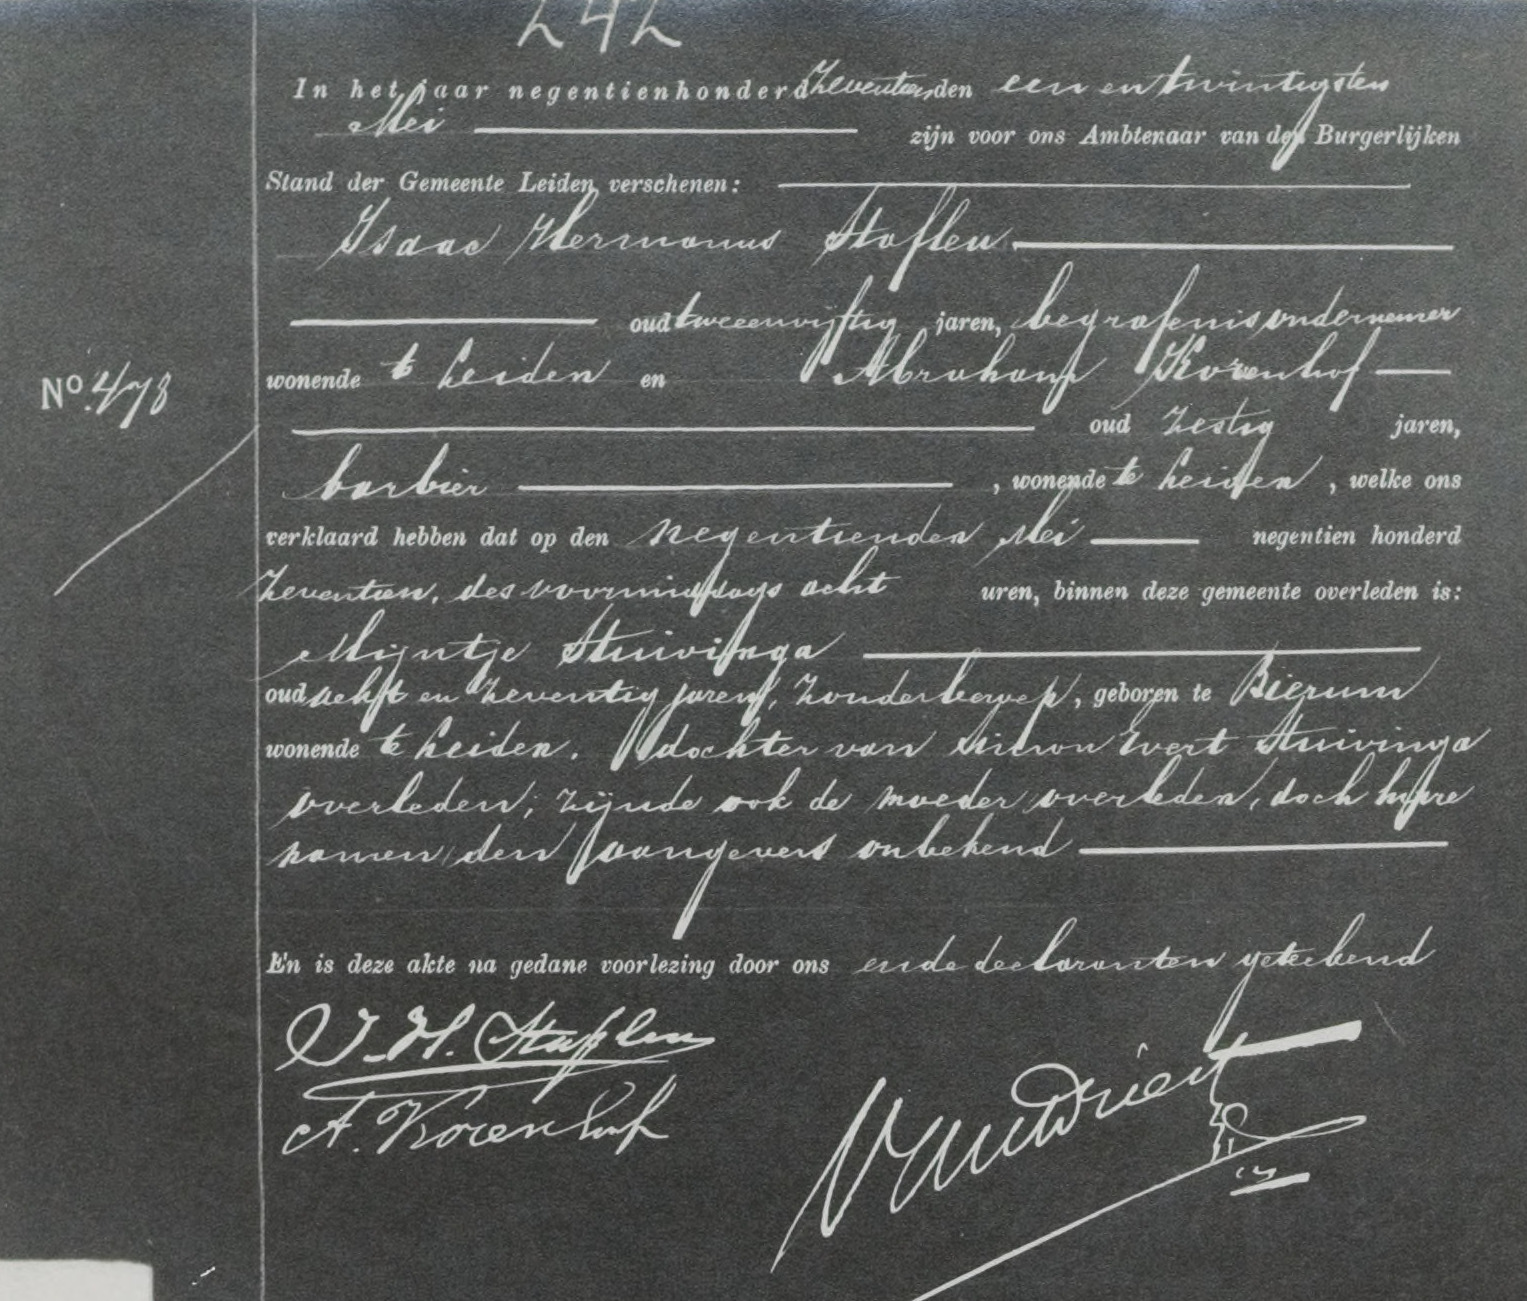 242
In het jaar negentienhonderd zeventien, den een en twintigsten
Mei zijn voor ons Ambtenaar van den Burgerlijken
Stand der Gemeente Leiden, verschenen:
Isaac Hermanus Stoflen
oud tweeenvijftig jaren, begrafenisondernemer
wonende te Leiden en Abraham Korenhof
No. 478
oud zestig jaren,
barbier , wonende te Leiden , welke ons
verklaard hebben dat op den negentienden Mei negentien honderd
zeventien, des voormiddags acht uren, binnen deze gemeente overleden is:
Mijntje Stuivinga
oud acht en zeventig jaren, zonder beroep, geboren te Bierum
wonende te Leiden, dochter van Simon Evert Stuivinga
overleden; zijnde ook de moeder overleden, doch hare
namen den aangevers onbekend
En is deze akte na gedane voorlezing door ons en de declaranten geteekend
I. H. Stoflen
A. Korenhof